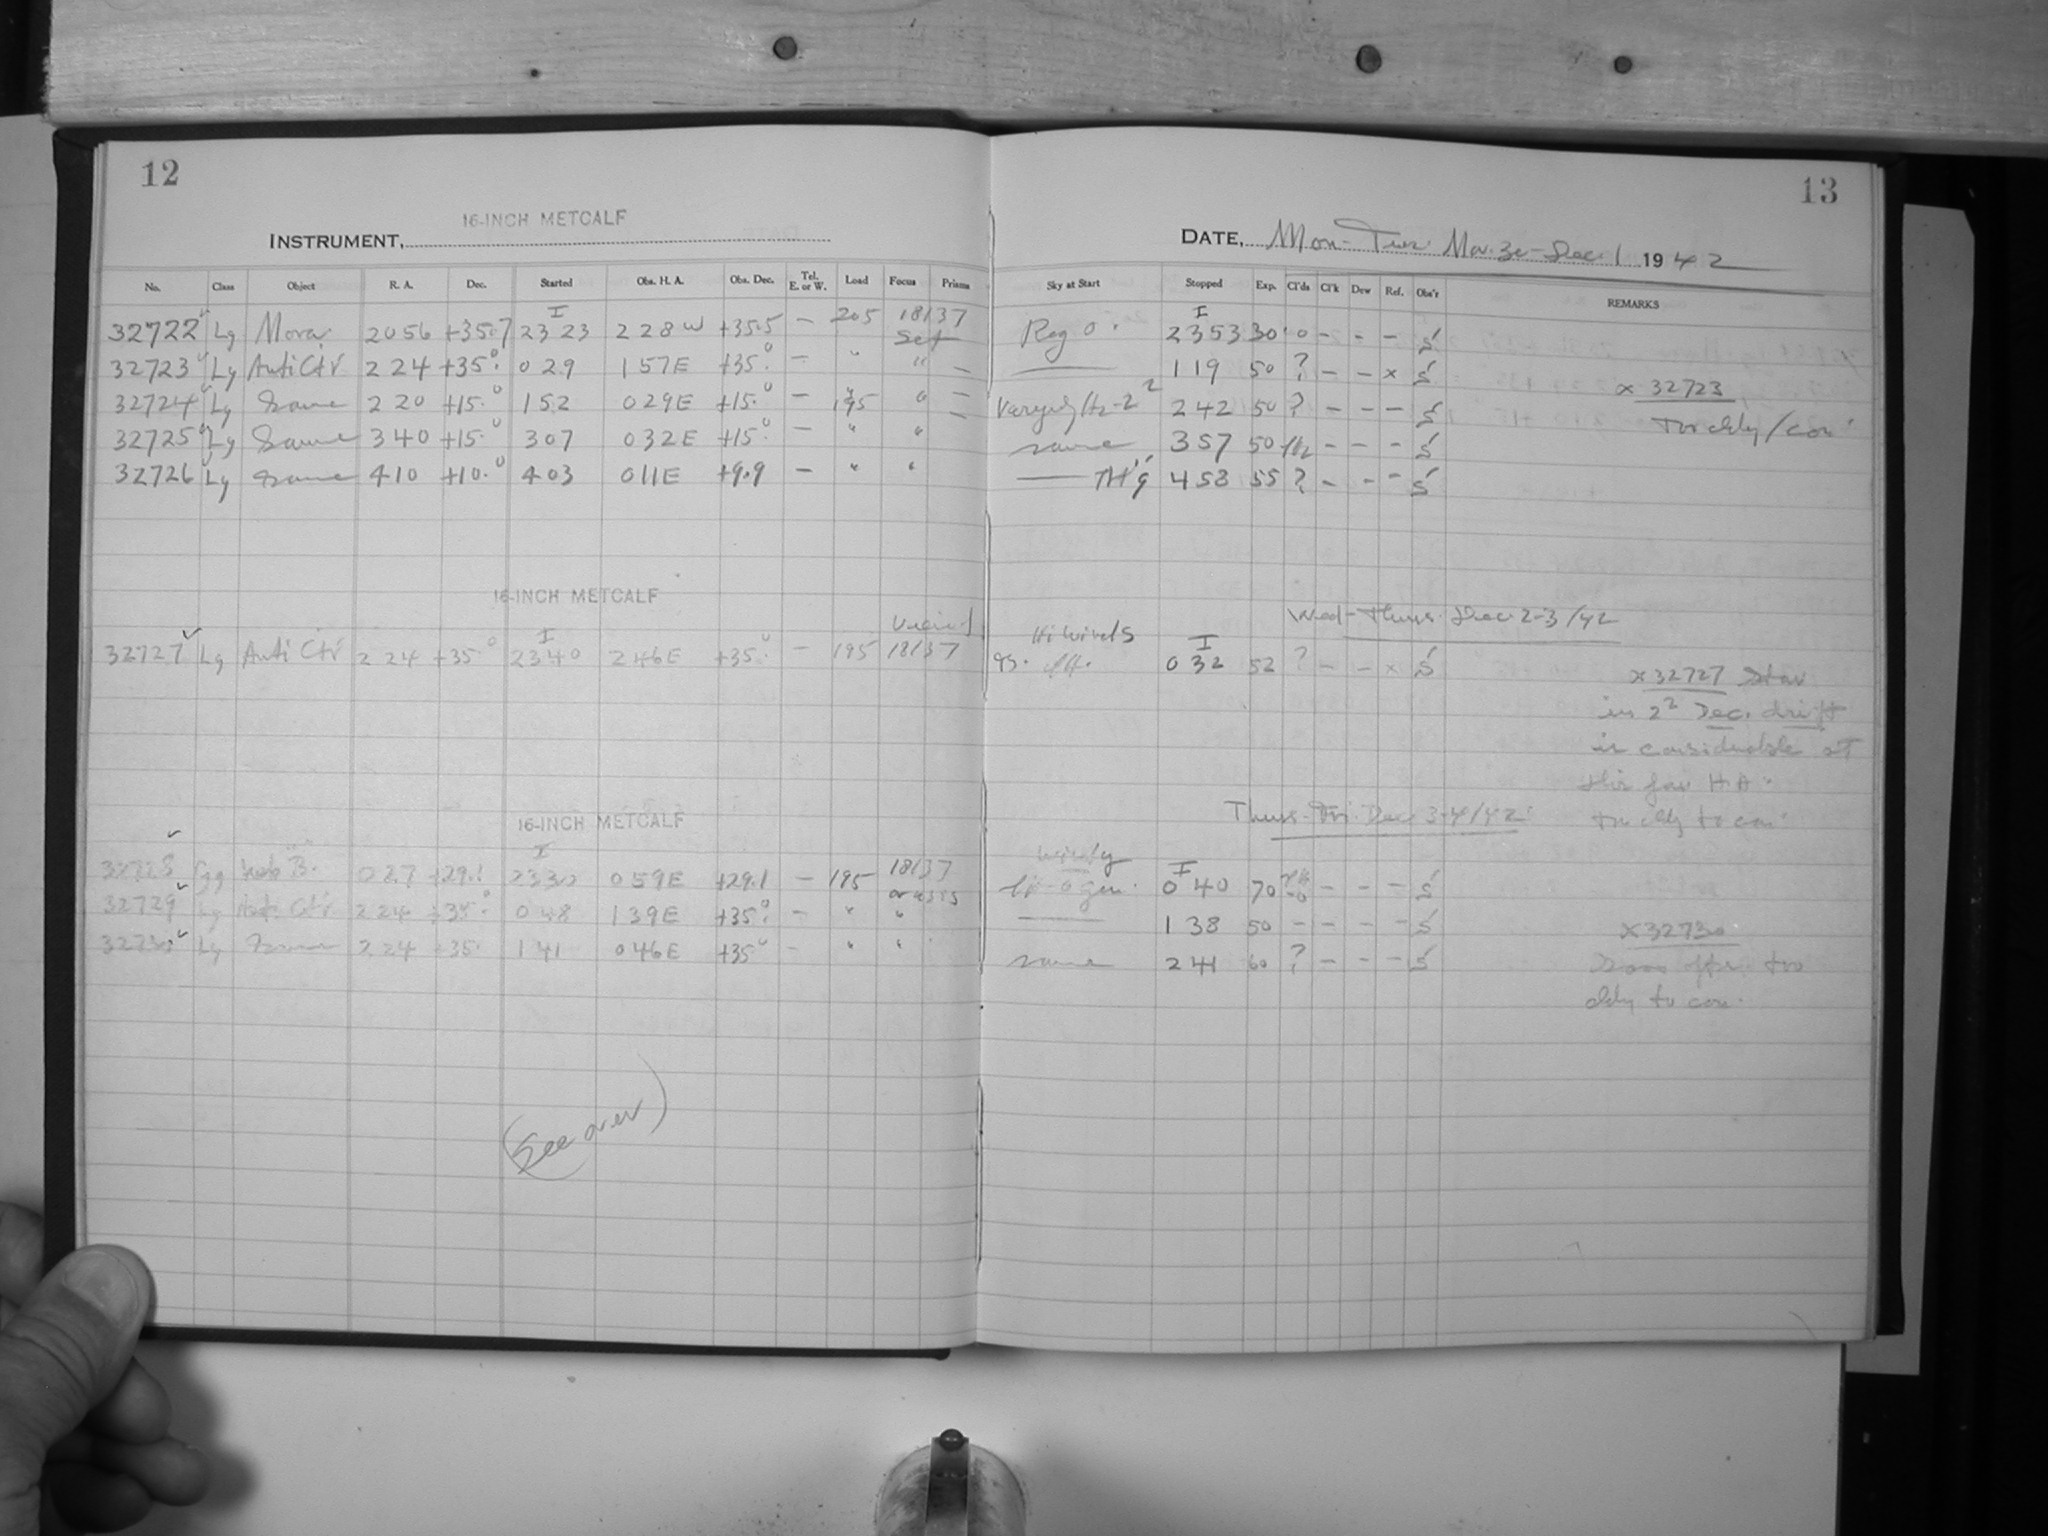 12
16-INCH METCALF
INSTRUMENT,
No. Class Object R. A. Dec. Started Obs. H. A. Obs. Dec. Tel. E. or W. Load Focus Prisms
32722 Lg 20 56 +35.7 I 23 23 2 28 W +35.5 — 205 18137 Set
32723 Lg Anti Ctr 2 24 +35.0 0 29 1 57 E +35.0 — " " —
32724 Lg Same 2 20 +15.0 1 52 0 29 E +15.0 — 195 " —
32725 Lg Same 3 40 +15.0 3 07 0 32 E +15.0 — " "
32726 Lg Same 4 10 +10.0 4 03 0 11 E +9.9 — " "
16-INCH METCALF
32727 Lg Anti Ctr 2 24 +35.0 I 23 40 2 46 E +35.0 — 195 18137
16-INCH METCALF
32728 0 27 +29.1 I 23 30 0 59 E +29.1 — 195 18137
32729 Lg Ctr 2 24 +35.0 0 48 1 39 E +35.0 — " "
32730 Lg Same 2 24 +35. 1 41 0 46 E +35.0 — " "
(See over)
13
DATE, Mon-Tues. Nov. 30-Dec. 1 1942
Sky at Start Stopped Exp. Cl'ds Cl'k Dew Ref. Obs'r REMARKS
Reg 0. I 23 53 30 0 - - - S
— 1 19 50 ? - - x S
x 32723
2 42 50 ? - - - S
same 3 57 50 - - - S
— 4 58 55 ? - - - S
Wed-Thurs. Dec 2-3/42
Hi Winds
I 0 32 52 ? - - x S
x 32727 Star
in 22 Dec. drift
is considerable at
this far H.A.
Thurs-Fri. Dec 3-4/42
to con.
Windy
I 0 40 70 - - - S
— 1 38 50 - - - - S
x 32730
same 2 41 60 ? - - - S
cldy to con.